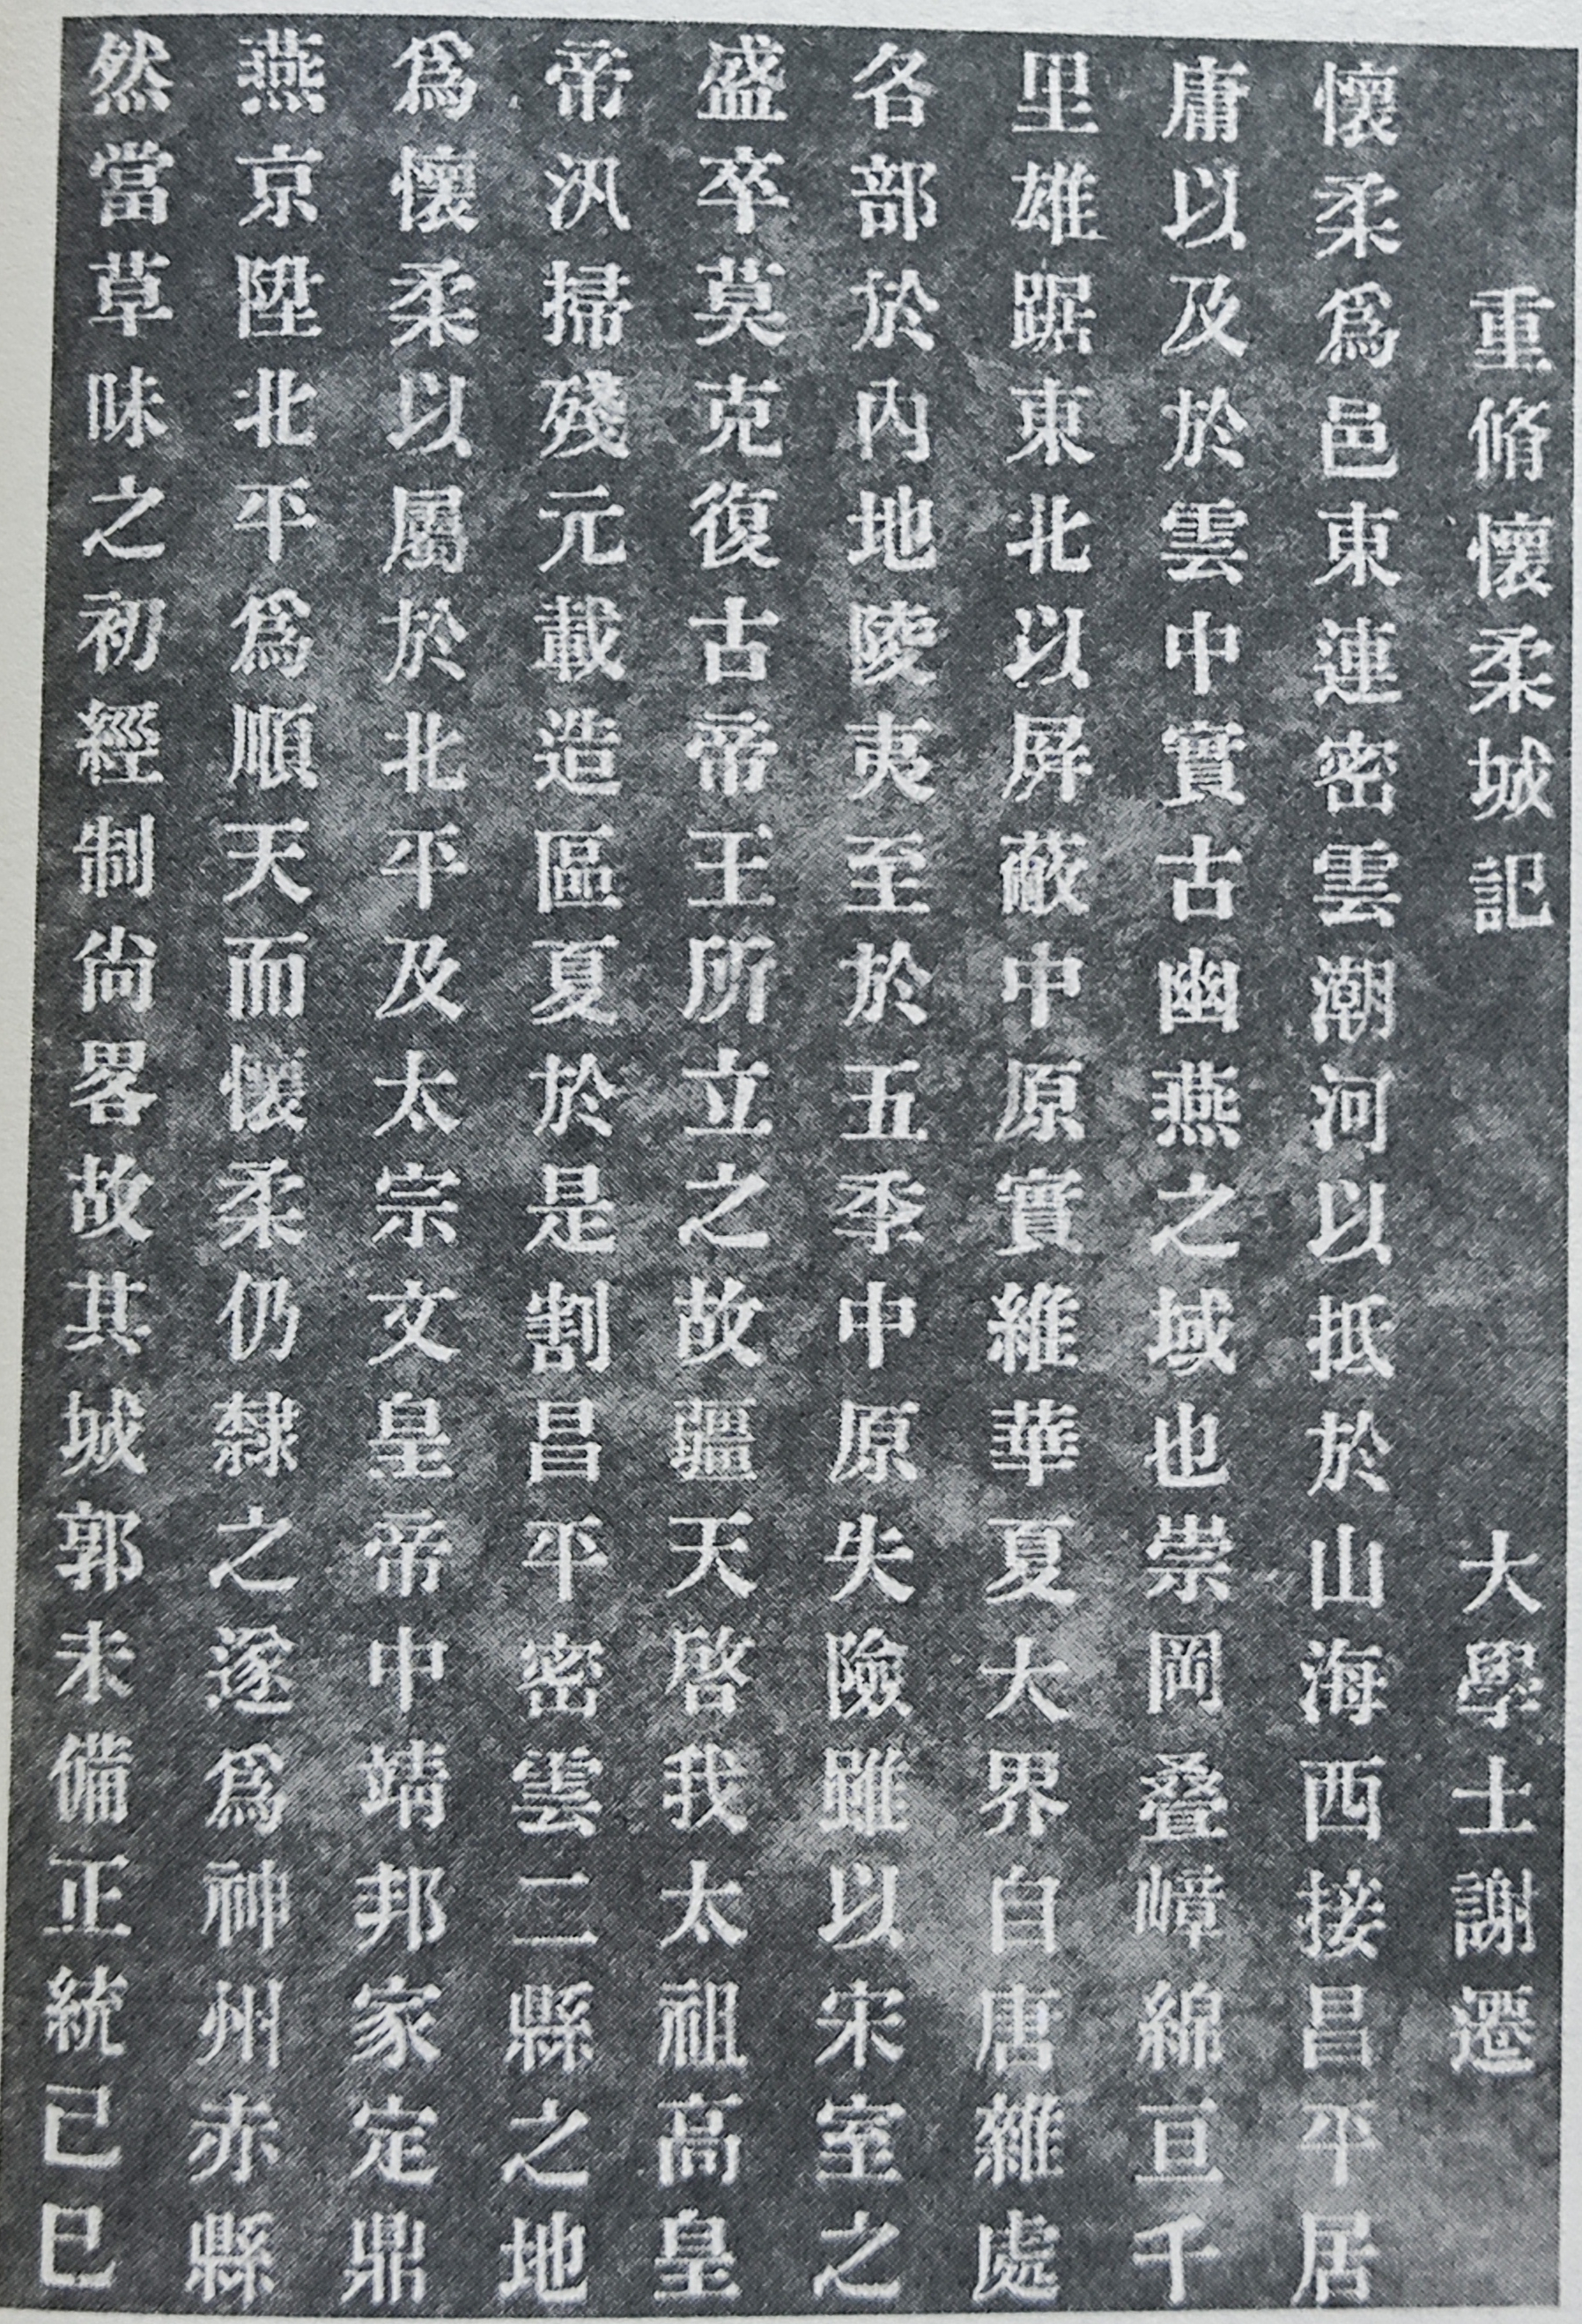 重脩懷柔城記 大學士謝遷
懷柔爲邑東連密雲潮河以抵於山海西接昌平居
庸以及於雲中實古幽燕之域也崇岡叠嶂綿亘千
里雄踞東北以屏蔽中原實維華夏大界自唐雜處
各部於內地陵夷至於五季中原失險雖以宋室之
盛卒莫克復古帝王所立之故疆天啓我太祖高皇
帝汛掃殘元載造區夏於是割昌平密雲二縣之地
爲懷柔以屬於北平及太宗文皇帝中靖邦家定鼎
燕京陞北平爲順天而懷柔仍隸之遂爲神州赤縣
然當草昧之初經制尙畧故其城郭未備正統己巳